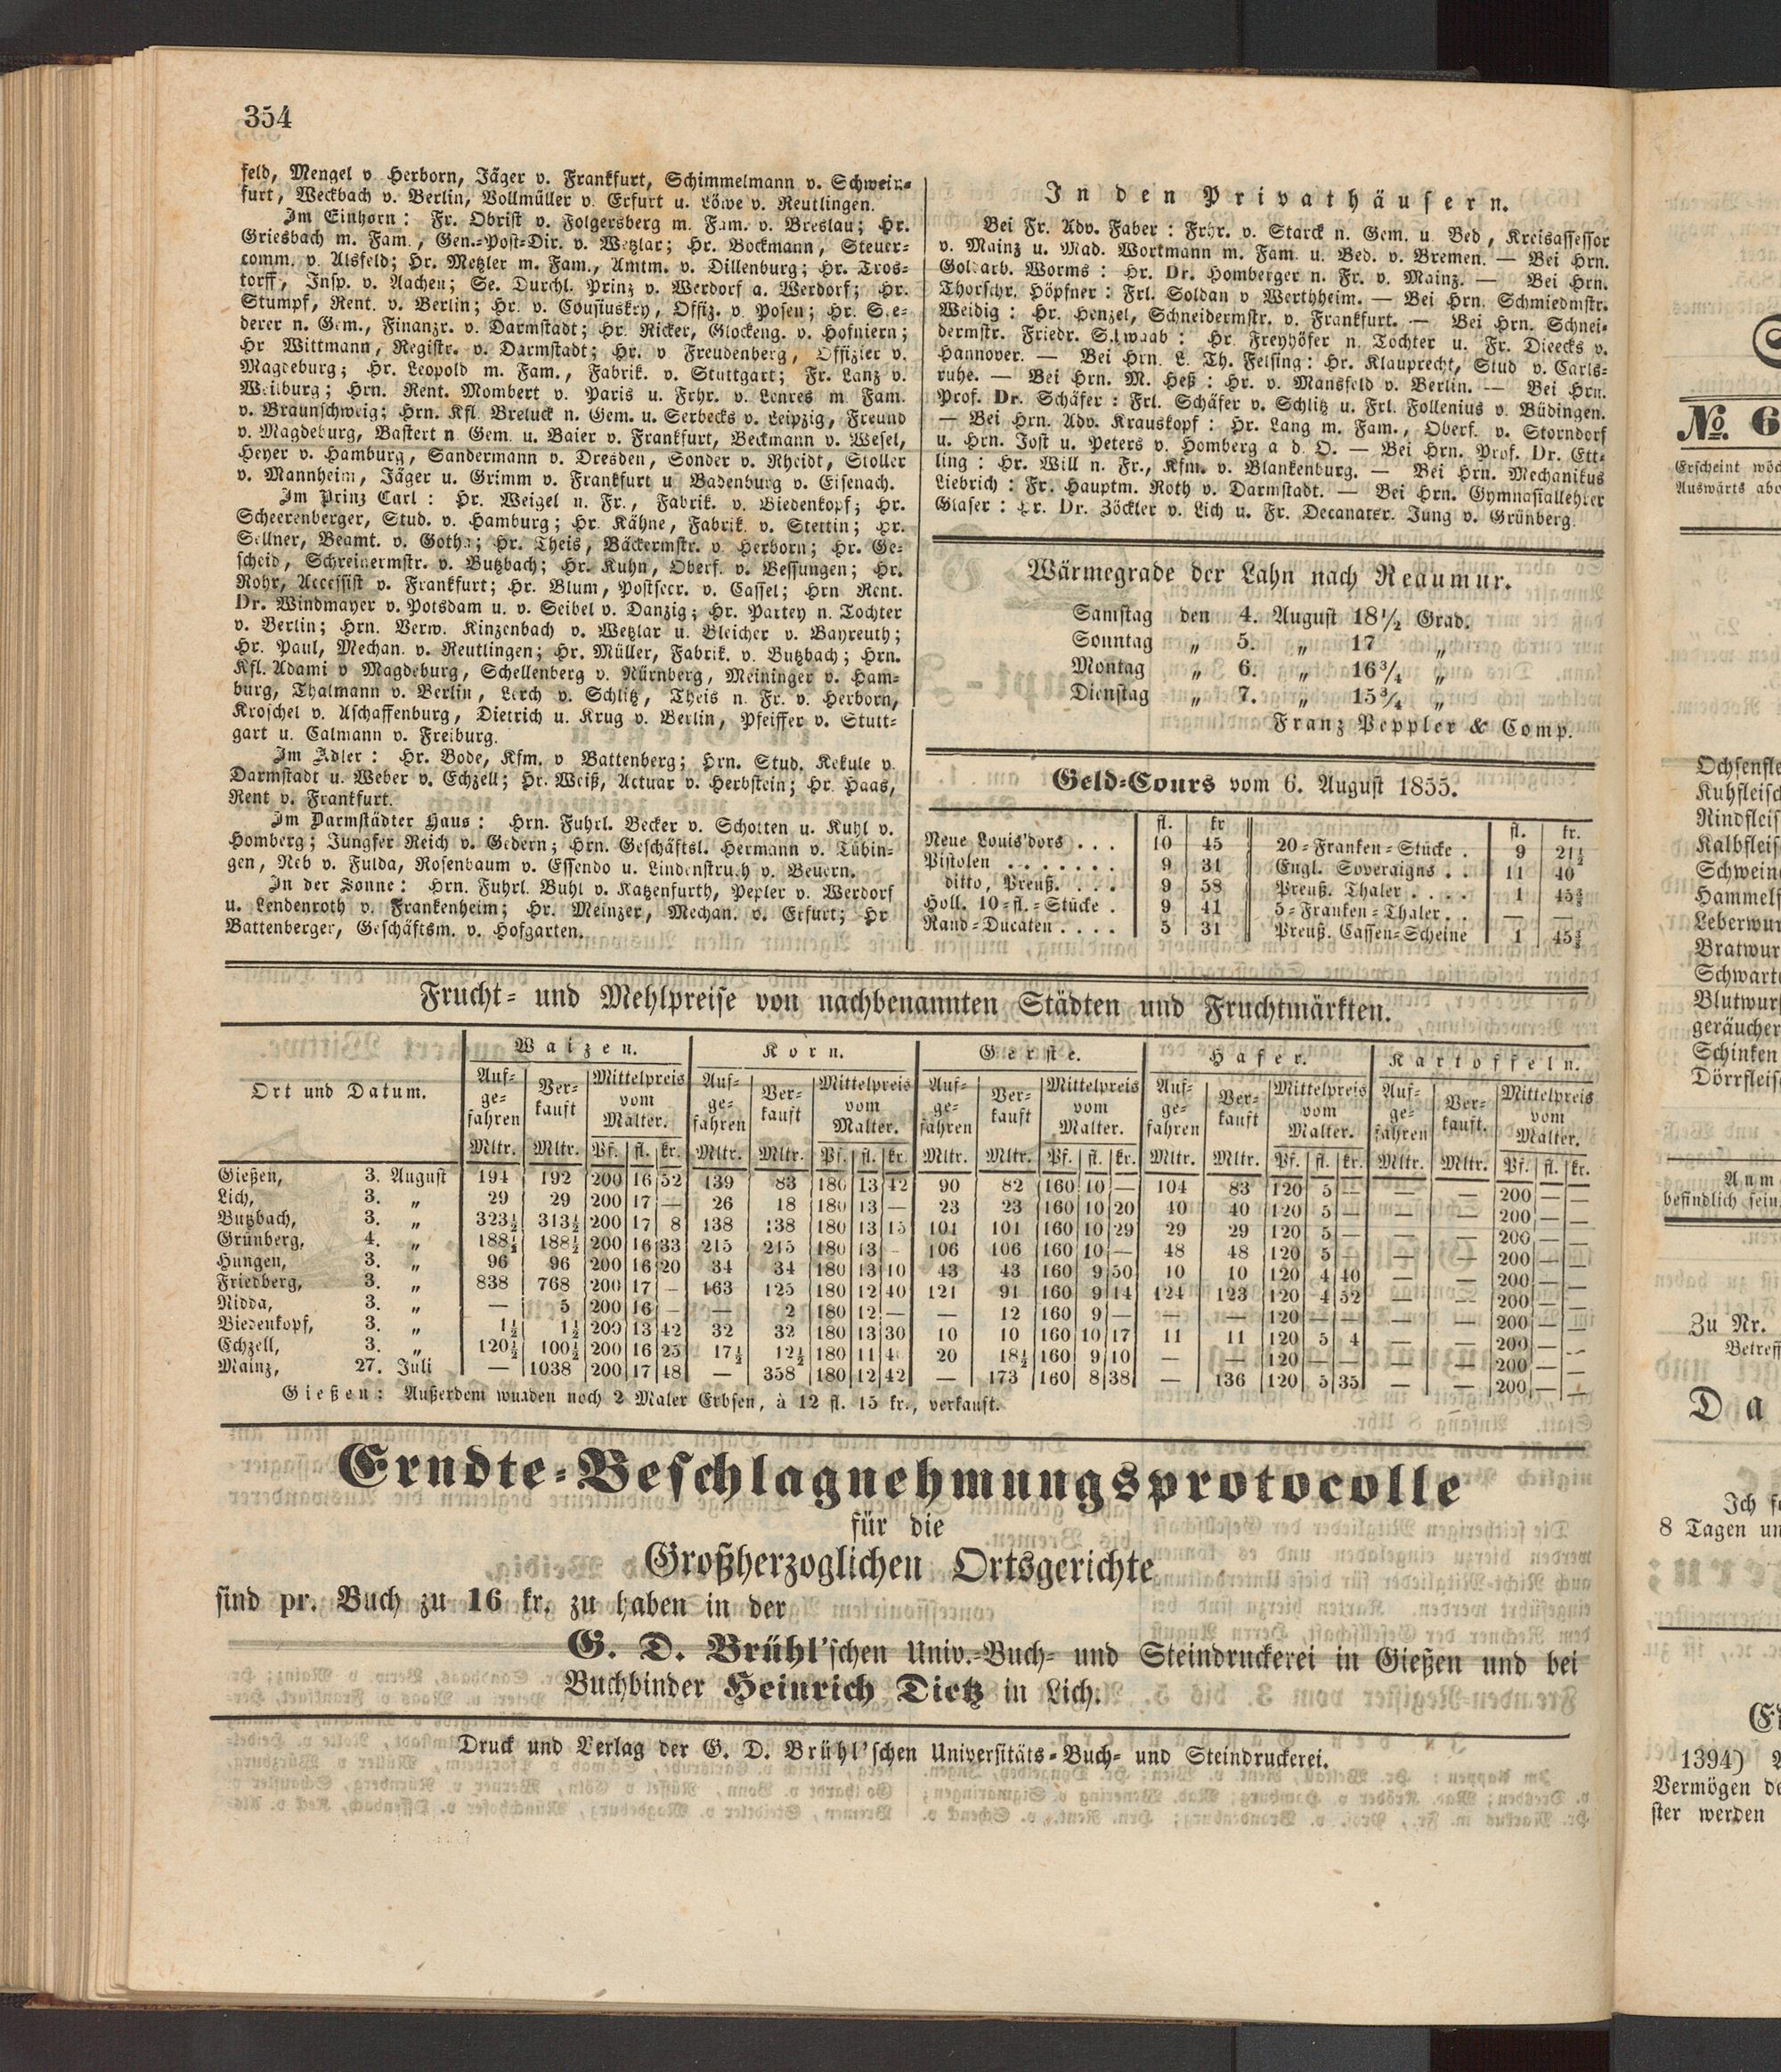 354
feld, Mengel v Herborn, Jäger v. Frankfurt, Schimmelmann v. Schwein=
furt, Weckbach v. Berlin, Vollmüller v. Erfurt u. Löwe v. Reutlingen.
Im Einhorn: Fr. Obrist v. Folgersberg m. Fam. v. Breslau; Hr.
Griesbach m. Fam., Gen.=Post=Dir. v. Wetzlar; Hr. Bockmann, Steuer=
comm. v. Alsfeld; Hr. Metzler m. Fam., Amtm. v. Dillenburg; Hr. Tros=
torff, Insp. v. Aachen; Se. Durchl. Prinz v. Werdorf a. Werdorf; Hr.
Stumpf, Rent. v. Berlin; Hr. v. Offiz. v. Posen; Hr. S.e=
derer n. Gem., Finanzr. v. Darmstadt; Hr. Ricker, Glockeng. v. Hofniern;
Hr Wittmann, Registr. v. Darmstadt; Hr. v Freudenberg, Offizier v.
Magdeburg; Hr. Leopold m. Fam., Fabrik. v. Stuttgart; Fr. Lanz v.
Weilburg; Hrn. Rent. Mombert v. Paris u. Frhr. v. Lenres m. Fam.
v. Braunschweig; Hrn. Kfl. Breluck n. Gem. u. Serbecks v. Leipzig, Freund
v. Magdeburg, Bastert n. Gem. u. Baier v. Frankfurt, Beckmann v. Wesel,
Heyer v. Hamburg, Sandermann v. Dresden, Sonder v. Rheidt, Stoller
v. Mannheim, Jäger u. Grimm v. Frankfurt u Badenburg v. Eisenach.
Im Prinz Carl: Hr. Weigel n. Fr., Fabrik. v. Biedenkopf; Hr.
Scheerenberger, Stud. v. Hamburg; Hr. Kähne, Fabrik. v. Stettin; Hr.
Sellner, Beamt. v. Gotha; Hr. Theis, Bäckermstr. v. Herborn; Hr. Ge=
scheid, Schreinermstr. v. Butzbach; Hr. Kuhn, Oberf. v. Bessungen; Hr.
Rohr, Accessist v. Frankfurt; Hr. Blum, Postsecr. v. Cassel; Hrn Rent.
Dr. Windmayer v. Potsdam u. v. Seibel v. Danzig; Hr. Partey n. Tochter
v. Berlin; Hrn. Verw. Kinzenbach v. Wetzlar u. Bleicher v. Bayreuth;
Hr. Paul, Mechan. v. Reutlingen; Hr. Müller, Fabrik. v. Butzbach; Hrn.
Kfl. Adami v Magdeburg, Schellenberg v. Nürnberg, Meininger v. Ham=
burg, Thalmann v. Berlin, Lerch v. Schlitz, Theis n. Fr. v. Herborn,
Kroschel v. Aschaffenburg, Dietrich u. Krug v. Berlin, Pfeiffer v. Stutt=
gart u. Calmann v. Freiburg.
Im Adler: Hr. Bode, Kfm. v Battenberg; Hrn. Stud. Kekule v.
Darmstadt u. Weber v. Echzell; Hr. Weiß, Actuar v. Herbstein; Hr. Haas,
Rent v. Frankfurt.
Im Darmstädter Haus: Hrn. Fuhrl. Becker v. Schotten u. Kuhl v.
Homberg; Jungfer Reich v. Gedern; Hrn. Geschäftsl. Hermann v. Tübin=
gen, Neb v. Fulda, Rosenbaum v. Essendo u. Lindenstruth v. Beuern.
In der Sonne: Hrn. Fuhrl. Buhl v. Katzenfurth, Pepler v. Werdorf
u. Lendenroth v. Frankenheim; Hr. Meinzer, Mechan. v. Erfurt; Hr
Battenberger, Geschäftsm. v. Hofgarten.
In den Privathäusern.
Bei Fr. Adv. Faber: Frhr. v. Starck n. Gem. u. Bed, Kreisassessor
v. Mainz u. Mad. Wortmann m. Fam. u. Bed. v. Bremen. — Bei Hrn.
Goldarb. Worms: Hr. Dr. Homberger n. Fr. v. Mainz. — Bei Hrn.
Thorschr. Höpfner: Frl. Soldan v Werthheim. — Bei Hrn. Schmiedmstr.
Weidig: Hr. Henzel, Schneidermstr. v. Frankfurt. — Bei Hrn. Schnei=
dermstr. Friedr. Schwaab: Hr. Freyhöfer n. Tochter u. Fr. Dieecks v.
Hannover. — Bei Hrn. L. Th. Felsing: Hr. Klauprecht, Stud v. Carls=
ruhe. — Bei Hrn. M. Heß: Hr. v. Mansfeld v. Berlin. — Bei Hrn.
Prof. Dr. Schäfer: Frl. Schäfer v. Schlitz u. Frl. Follenius v. Büdingen.
— Bei Hrn. Adv. Krauskopf: Hr. Lang m. Fam., Oberf. v. Storndorf
u. Hrn. Jost u. Peters v. Homberg a d. O. — Bei Hrn. Prof. Dr. Ett=
ling: Hr. Will n. Fr., Kfm. v. Blankenburg. — Bei Hrn. Mechanikus
Liebrich: Fr. Hauptm. Roth v. Darmstadt. — Bei Hrn. Gymnasiallehrer
Glaser: Hr. Dr. Zöckler v. Lich u. Fr. Decanatsr. Jung v. Grünberg
Wärmegrade der Lahn nach Reaumur.
Samstag den 4. August 18½ Grad.
Sonntag „ 5. „ 17 „
Montag „ 6. „ 16¾ „
Dienstag „ 7. „ 15¾ „
Franz Peppler & Comp.
Geld=Cours vom 6. August 1855.
fl. kr fl. kr.
Neue Louis'dors . . . 10 45 20=Franken=Stücke . 9 21½
Pistolen . . . . . . . 9 31 Engl. Soveraigns . . 11 40
ditto, Preuß. . . . . 9 58 Preuß. Thaler . . . . 1 45⅜
Holl. 10=fl.=Stücke . 9 41 5=Franken=Thaler . . — —
Rand=Ducaten . . . . 5 31 Preuß. Cassen=Scheine 1 45⅜
Frucht= und Mehlpreise von nachbenannten Städten und Fruchtmärkten.
Ort und Datum. Waizen. Korn. Gerste. Hafer. Kartoffeln.
Auf=gefahren Verkauft Mittelpreis vom Malter. Auf=gefahren Verkauft Mittelpreis vom Malter. Auf=gefahren Verkauft Mittelpreis vom Malter. Auf=gefahren Verkauft Mittelpreis vom Malter. Auf=gefahren Verkauft. Mittelpreis vom Malter.
Mltr. Mltr. Pf. fl. kr. Mltr. Mltr. Pf. fl. kr Mltr. Mltr. Pf. fl. kr. Mltr. Mltr. Pf. fl. kr. Mltr. Mltr. Pf. fl. kr.
Gießen, 3. August 194 192 200 16 52 139 83 180 13 42 90 82 160 10 — 104 83 120 5 — — — 200 — —
Lich, 3. „ 29 29 200 17 — 26 18 180 13 — 23 23 160 10 20 40 40 120 5 — — — 200 — —
Butzbach, 3. „ 323½ 313½ 200 17 8 138 138 180 13 15 101 101 160 10 29 29 29 120 5 — — — 200 — —
Grünberg, 4. „ 188½ 188½ 200 16 33 215 215 180 13 - 106 106 160 10 — 48 48 120 5 — — — 200 — —
Hungen, 3. „ 96 96 200 16 20 34 34 180 13 10 43 43 160 9 50 10 10 120 4 40 — — 200 — —
Friedberg, 3. „ 838 768 200 17 — 163 125 180 12 40 121 91 160 9 14 124 123 120 4 52 — — 200 — —
Nidda, 3. „ — 5 200 16 — — 2 180 12 — — 12 160 9 — — — 120 — — — — 200 — —
Biedenkopf, 3. „ 1½ 1½ 200 13 42 32 32 180 13 30 10 10 160 10 17 11 11 120 5 4 — — 200 — —
Echzell, 3. „ 120½ 100½ 200 16 25 17½ 12½ 180 11 20 18½ 160 9 10 — — 120 — — — — 200 — —
Mainz, 27. Juli — 1038 200 17 48 — 358 180 12 42 — 173 160 8 38 — 136 120 5 35 — — 200 — —
Gießen: Außerdem wurden noch 2 Malter Erbsen, à 12 fl. 15 kr., verkauft.
Erndte=Beschlagnehmungsprotocolle
für die
Großherzoglichen Ortsgerichte
sind pr. Buch zu 16 kr. zu haben in der
G. D. Brühl'schen Univ.=Buch= und Steindruckerei in Gießen und bei
Buchbinder Heinrich Dietz in Lich.
Druck und Verlag der G. D. Brühl'schen Universitäts=Buch= und Steindruckerei.
No. 6
Erscheint wöc
Auswärts abo
Ochsenfle
Kuhfleisc
Rindfleis
Kalbfleis
Schwein
Hammelf
Leberwur
Bratwur
Schwarte
Blutwurs
geräucher
Schinken
Dörrfleis
Anm
befindlich sein
Zu Nr.
Betreff
Da
Ich se
8 Tagen un
1394)
Vermögen de
ster werden